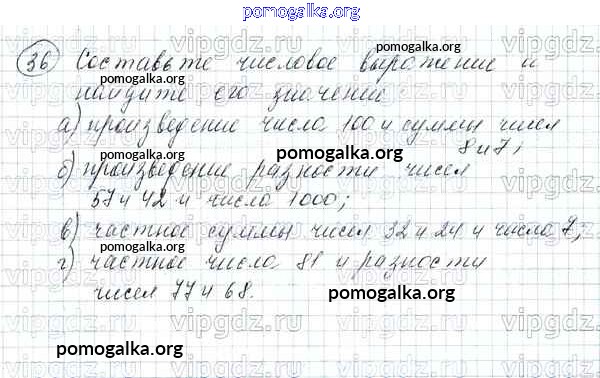 pomogalka.org
36 Составьте числовое выражение и
найдите его значение
а) произведение числа 100 и суммы чисел
8 и 7;
б) произведение разности чисел
57 и 42 и число 1000;
в) частное суммы чисел 32 и 24 и число 7;
г) частное число 81 и разности
чисел 77 и 68.
pomogalka.org
pomogalka.org
pomogalka.org
pomogalka.org
pomogalka.org
pomogalka.org
pomogalka.org
vipgdz.ru